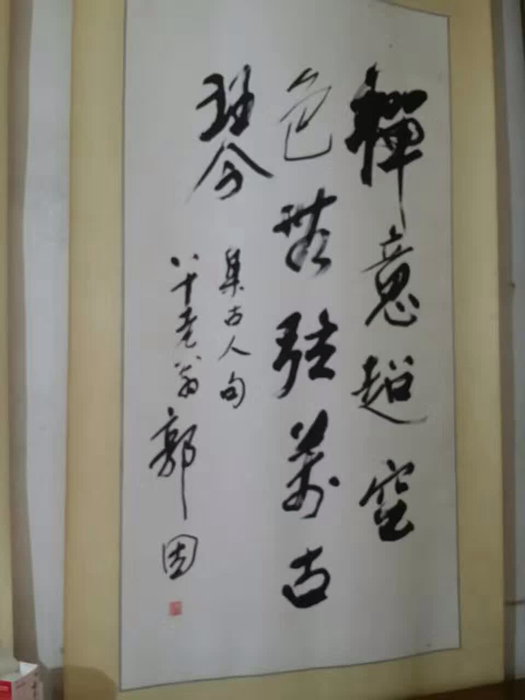 禪意超空
色無弦萬古
琴
集古人句
八十老翁郭因